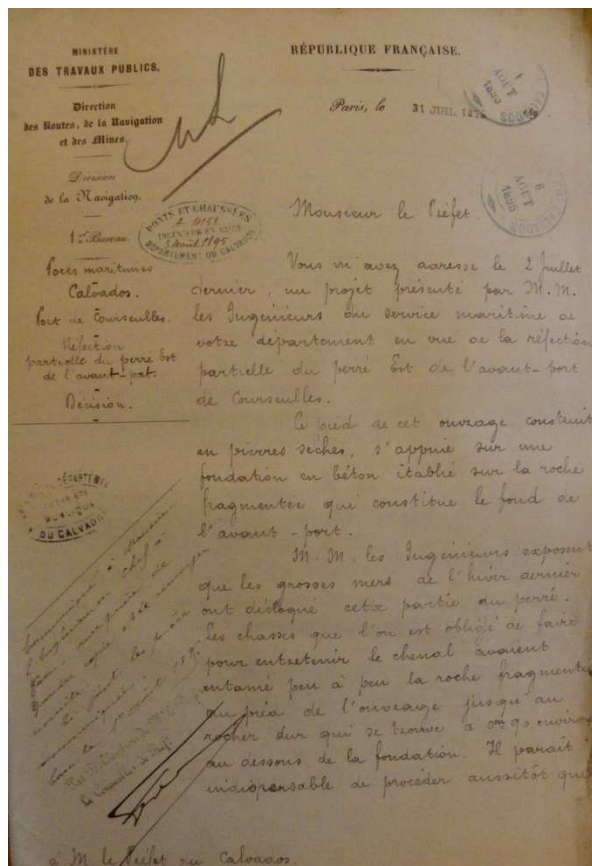 MINISTÈRE
DES TRAVAUX PUBLICS.
Direction
des Routes, de la Navigation
et des Mines.
Division
de la Navigation.
1er Bureau.
Ports maritimes
Calvados.
Port de Courseulles.
Réfection
partielle du perré Est
de l'avant-port.
Décision.
RÉPUBLIQUE FRANÇAISE.
Paris, le 31 JUIL. 1895
1
AOUT
1895
6
AOUT
1895
PONTS ET CHAUSSÉES
INGÉNIEUR EN CHEF
Août 1895
DÉPARTEMENT DU CALVADOS
Monsieur le Préfet
Vous m'avez adressé le 2 Juillet
dernier, un projet présenté par M.M.
les Ingénieurs du service maritime de
votre département en vue de la réfection
partielle du perré Est de l'avant-port
de Courseulles.
Le pied de cet ouvrage construit
en pierres sèches, s'appuie sur une
fondation en béton établie sur la roche
fragmentée qui constitue le fond de
l'avant-port.
M.M. les Ingénieurs exposent
que les grosses mers de l'hiver dernier
ont disloqué cette partie du perré.
Les chasses que l'on est obligé de faire
pour entretenir le chenal avaient
entamé peu à peu la roche fragmentée
au pied de l'ouvrage jusqu'au
rocher dur qui se trouve à 0m,90 environ
au dessous de la fondation. Il paraît
indispensable de procéder aussitôt que
DU CALVADOS
à M. le Préfet du Calvados.